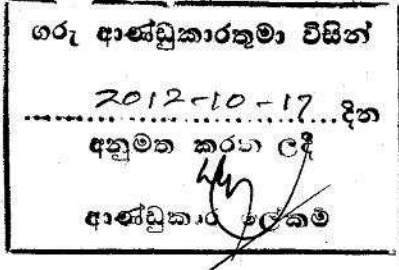 ගරු ආණ්ඩුකාරතුමා විසින්
2012-10-17 දින
අනුමත කරන ලදී
ආණ්ඩුකාර ලේකම්